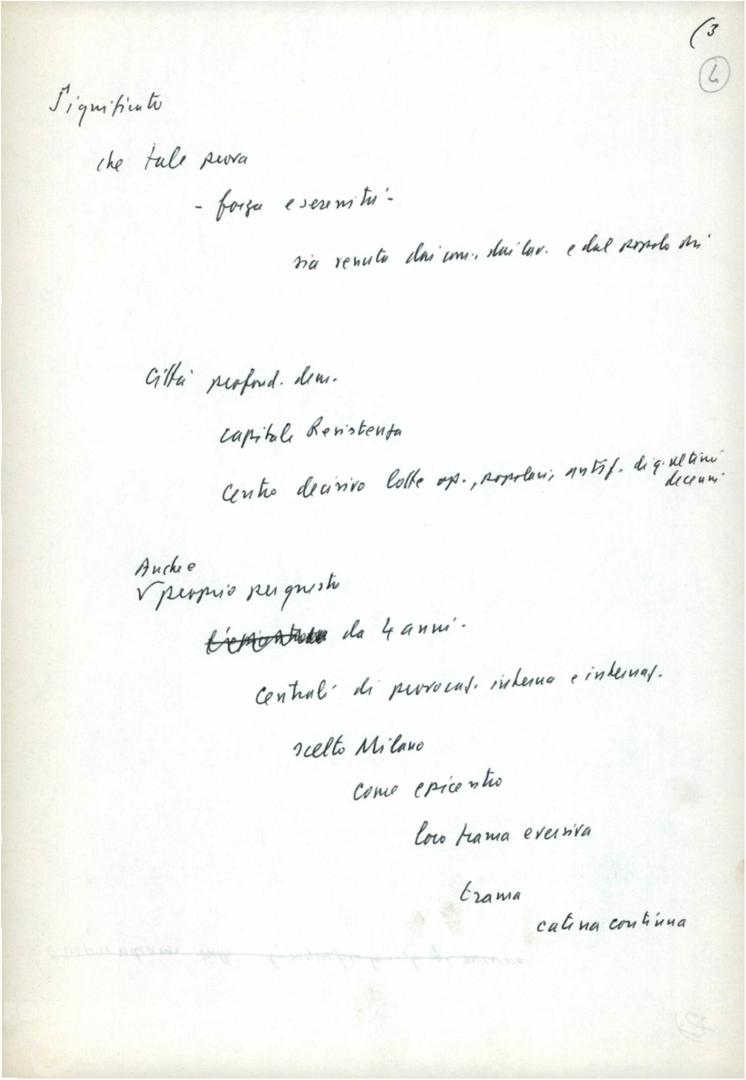 (3
4
Significato
che tale prova
- forza e serenità -
sia venuta dai com., dai lav. e dal popolo mi
Città profond. dem.
capitale Resistenza
Centro decisivo lotte op., popolari, antif. di q. ultimi
decenni
Anche
√ proprio per questo
da 4 anni.
Centrali di provocaz. interna e internaz.
scelto Milano
come epicentro
loro trama eversiva
trama
catena continua